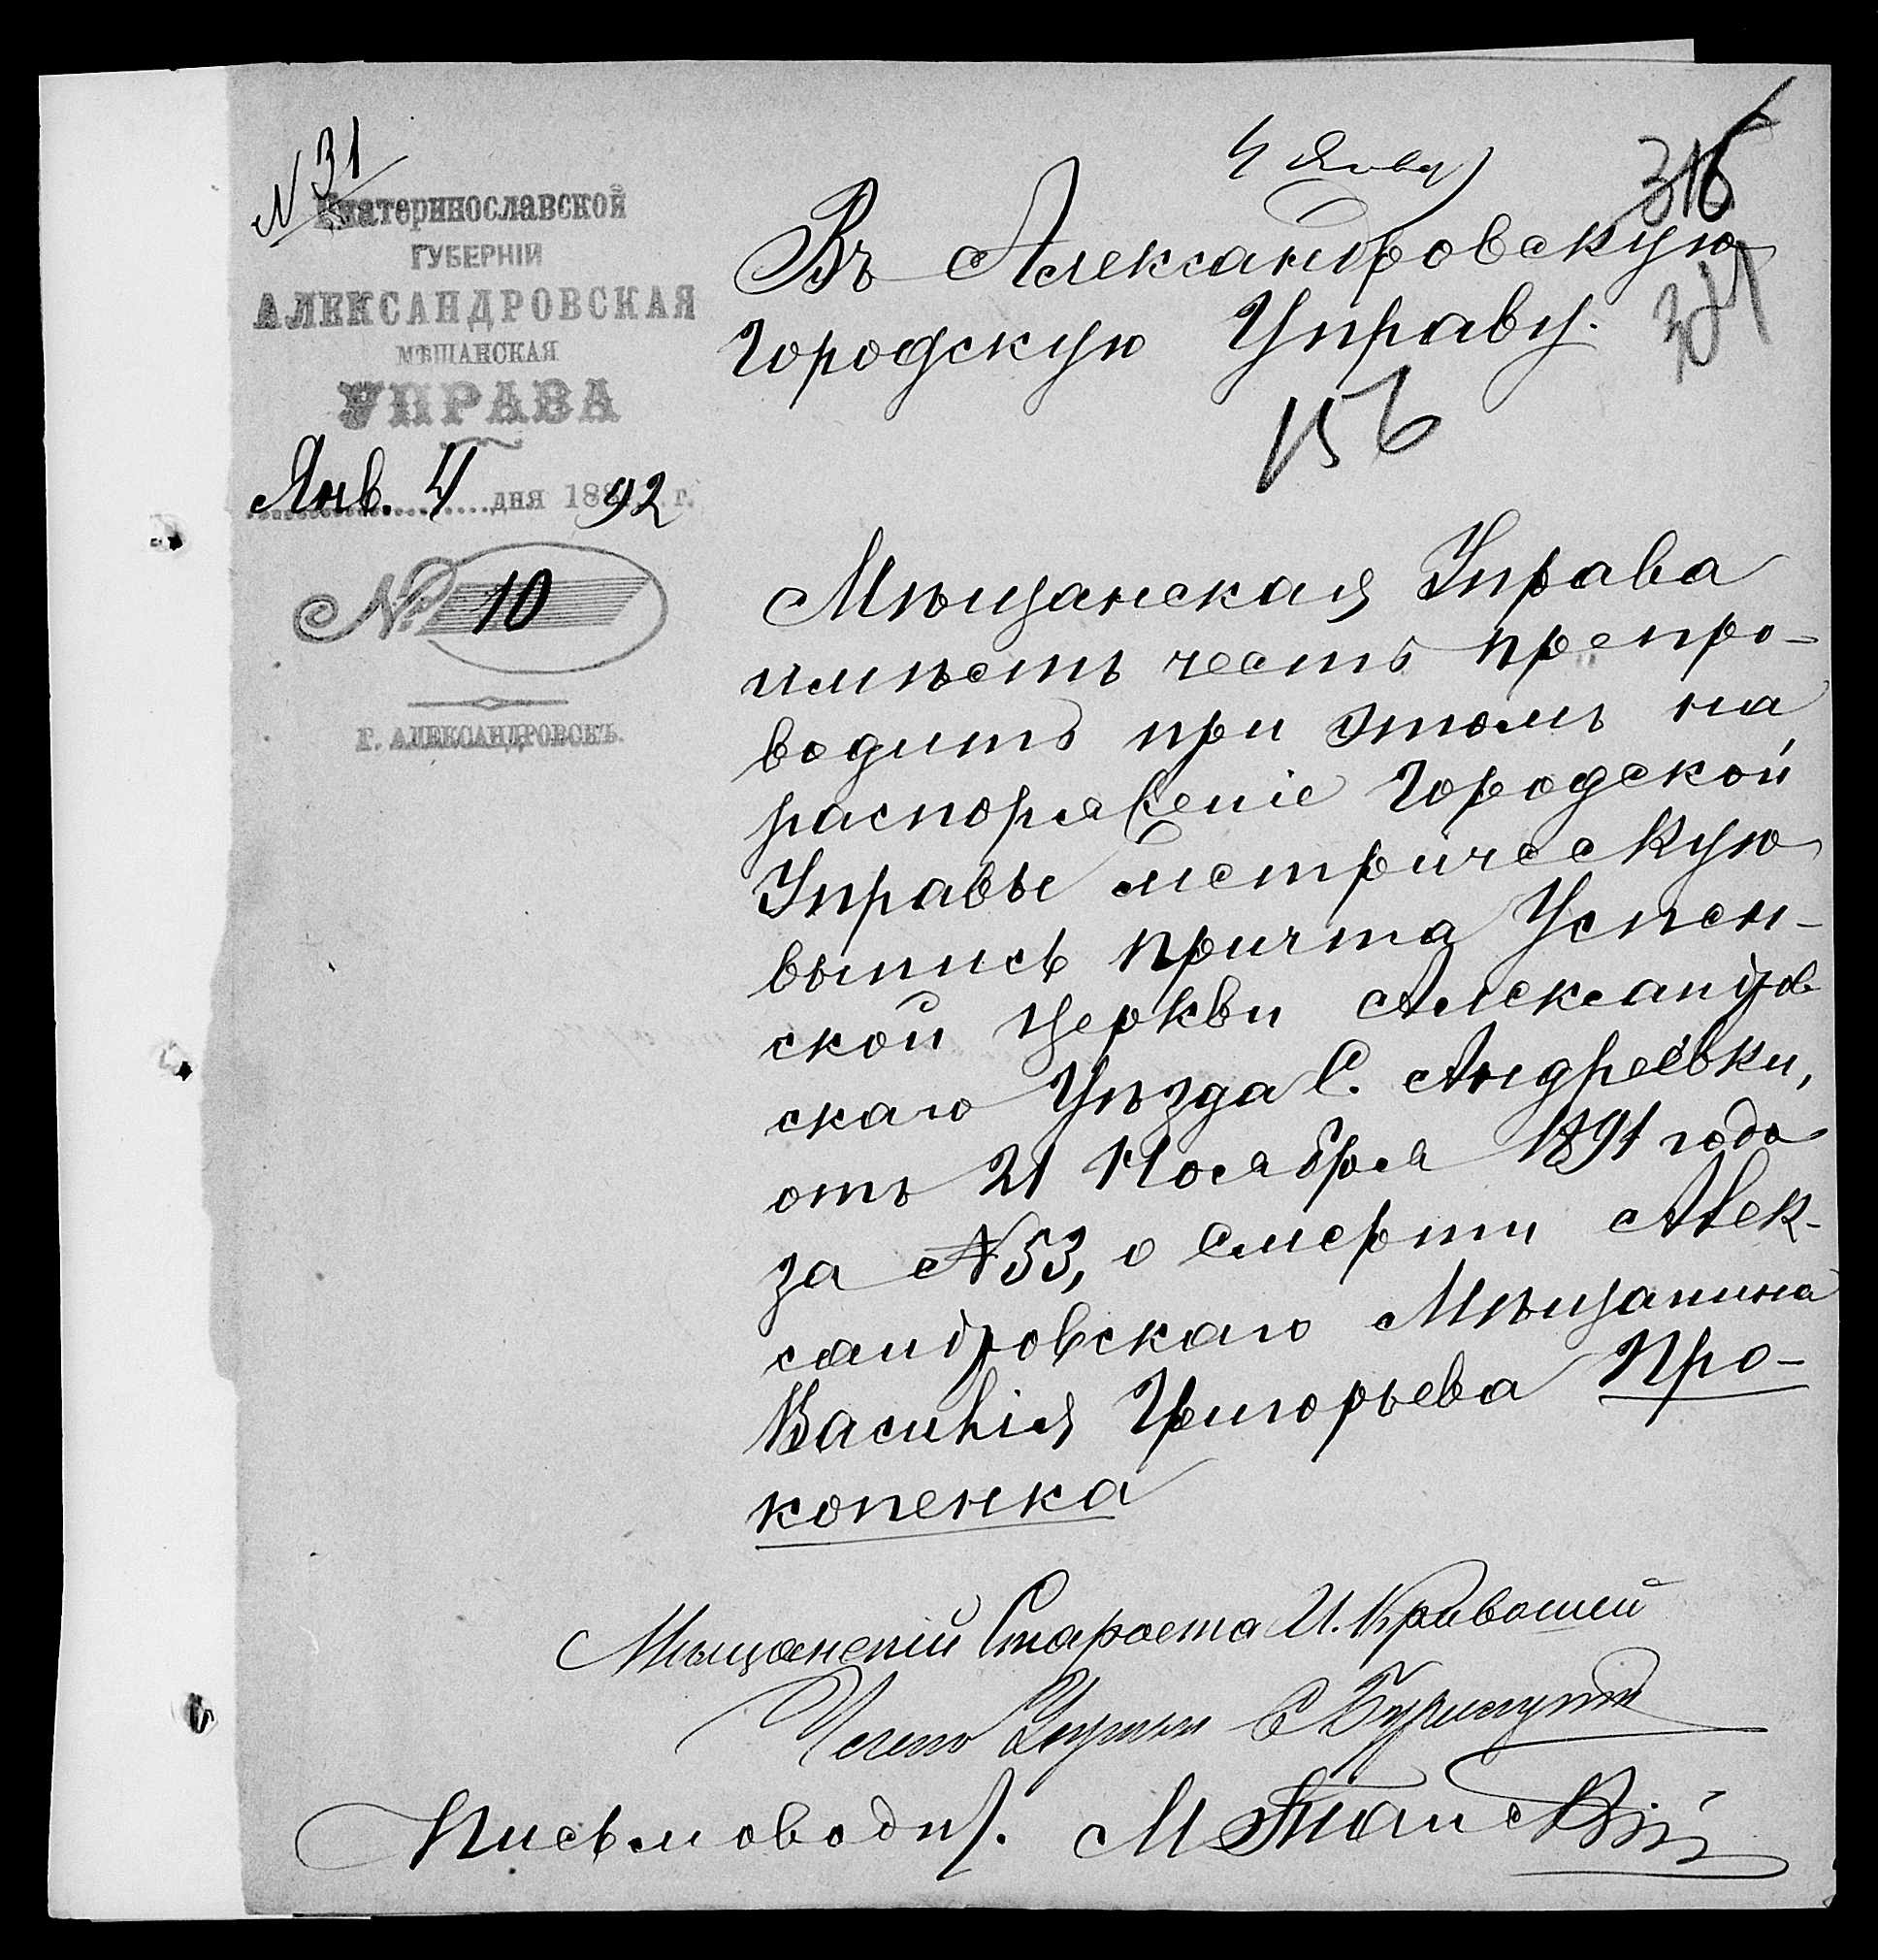 № 31
Екатеринославской
ГУБЕРНІИ
АЛЕКСАНДРОВСКАЯ
МѢЩАНСКАЯ
УПРАВА
Янв. 4 дня 1892 г.
№ 10
Г. АЛЕКСАНДРОВСКЪ.
4 Янва
316
Въ Александровскую
Городскую Управу.
156
Мѣщанская Управа
имѣетъ честь препро-
водить при этомъ на
распоряженіе Городской
Управы метрическую
выпись причта Успен-
ской Церкви Александров
скаго Уѣзда С. Андреевки,
отъ 21 Ноября 1891 года
за № 53, о смерти Алек-
сандровскаго Мѣщанина
Василія Григорьева Про-
копенка
Мѣщанскій Староста И. Кривошей
Членъ Управы
Письмоводит.